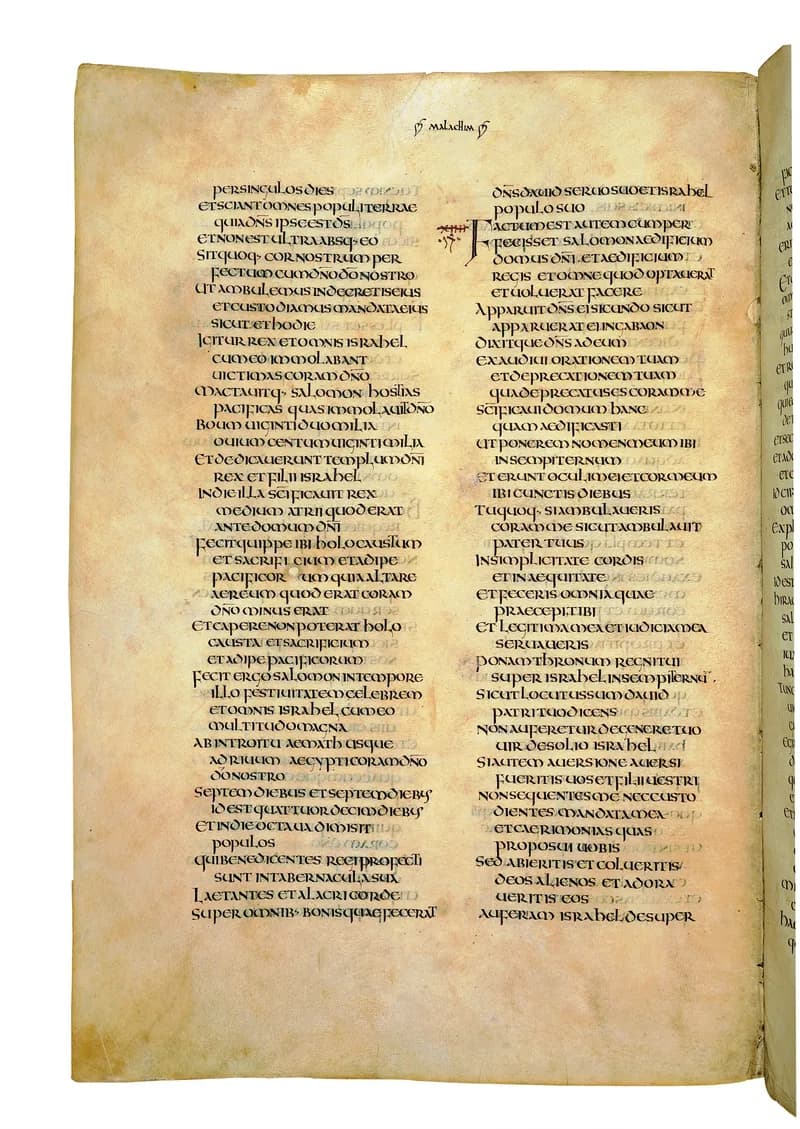 MALACHIM
PERSINGULOS DIES
ET SCIANT OMNES POPULI TERRAE
QUIA DN̄S IPSE EST D̄S
ET NON EST ULTRA ABSQ· EO
SIT QUOQ· COR NOSTRUM PER
FECTUM CUM DN̄O D̄O NOSTRO
UT AMBULEMUS IN DECRETIS EIUS
ET CUSTODIAMUS MANDATA EIUS
SICUT ET HODIE
IGITUR REX ET OMNIS ISRAHEL
CUM EO IMMOLABANT
UICTIMAS CORAM DN̄O
MACTAUITQ· SALOMON HOSTIAS
PACIFICAS QUAS IMMOLAUIT DN̄O
BOUM UIGINTI DUO MILIA
OUIUM CENTUM UIGINTI MILIA
ET DEDICAUERUNT TEMPLUM DN̄I
REX ET FILII ISRAHEL
IN DIE ILLA SC̄IFICAUIT REX
MEDIUM ATRII QUOD ERAT
ANTE DOMUM DN̄I
FECIT QUIPPE IBI HOLOCAUSTUM
ET SACRIFICIUM ET ADIPE
PACIFICOR UM QUIA ALTARE
AEREUM QUOD ERAT CORAM
DN̄O MINUS ERAT
ET CAPERE NON POTERAT HOLO
CAUSTA ET SACRIFICIUM
ET ADIPE PACIFICORUM
FECIT ERGO SALOMON IN TEMPORE
ILLO FESTIUITATEM CELEBREM
ET OMNIS ISRAHEL CUM EO
MULTITUDO MAGNA
AB INTROITU AEMATH USQUE
AD RIUUM AEGYPTI CORAM DN̄O
D̄O NOSTRO
SEPTEM DIEBUS ET SEPTEM DIEBUS
ID EST QUATTUORDECIM DIEBUS
ET IN DIE OCTAUA DIMISIT
POPULOS
QUI BENEDICENTES REGI PROFECTI
SUNT IN TABERNACULA SUA
LAETANTES ET ALACRI CORDE
SUPER OMNIB· BONIS QUAE FECERAT
DN̄S DAUID SERUO SUO ET ISRAHEL
POPULO SUO
FACTUM EST AUTEM CUM PER
FECISSET SALOMON AEDIFICIUM
DOMUS DN̄I ET AEDIFICIUM
REGIS ET OMNE QUOD OPTAUERAT
ET UOLUERAT FACERE
APPARUIT DN̄S EI SICUNDO SICUT
APPARUERAT EI IN GABAON
DIXITQUE DN̄S AD EUM
EXAUDIUI ORATIONEM TUAM
ET DEPRECATIONEM TUAM
QUA DEPRECATUS ES CORAM ME
SC̄IFICAUI DOMUM HANC
QUAM AEDIFICASTI
UT PONEREM NOMEN MEUM IBI
IN SEMPITERNUM
ET ERUNT OCULI MEI ET COR MEUM
IBI CUNCTIS DIEBUS
TU QUOQ· SI AMBULAUERIS
CORAM ME SICUT AMBULAUIT
PATER TUUS
IN SIMPLICITATE CORDIS
ET IN AEQUITATE
ET FECERIS OMNIA QUAE
PRAECEPI TIBI
ET LEGITIMA MEA ET IUDICIA MEA
SERUAUERIS
PONAM THRONUM REGNI TUI
SUPER ISRAHEL IN SEMPITERNŪ
SICUT LOCUTUS SUM DAUID
PATRI TUO DICENS
NON AUFERETUR DE GENERE TUO
UIR DE SOLIO ISRAHEL
SI AUTEM AUERSIONE AUERSI
FUERITIS UOS ET FILII UESTRI
NON SEQUENTES ME NEC CUSTO
DIENTES MANDATA MEA
ET CAERIMONIAS QUAS
PROPOSUI UOBIS
SED ABIERITIS ET COLUERITIS
DEOS ALIENOS ET ADORA
UERITIS EOS
AUFERAM ISRAHEL DE SUPER